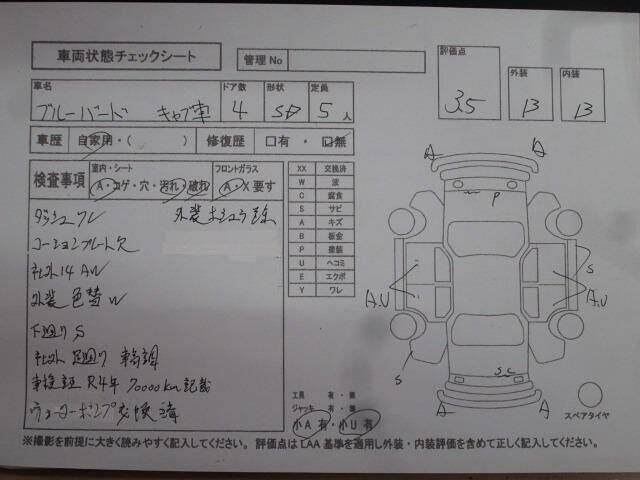 車両状態チェックシート
管理No
評価点
3.5
外装
B
内装
B
車名
ブルーバード キャブ車
ドア数
4
形状
SD
定員
5 人
車歴 自家用・( ) 修復歴 □有・□無
検査事項
室内・シート
A・コゲ・穴・汚れ・破れ
フロントガラス
A・X要す
ダッシュワレ
外装
コーションプレート欠
社外14AW
外装 色替W
下廻りS
社外 足廻り 車高調
車検証 R4年 70000km記載
ウォーターポンプ交換済
XX 交換済
W 波
C 腐食
S サビ
A キズ
B 板金
P 塗装
U ヘコミ
E エクボ
Y ワレ
工具 有・無
ジャッキ 有・無
小A有・小U有
A
A
P
A.U
S
A.U
S
S C
A
A
スペアタイヤ
※撮影を前提に大きく読みやすく記入してください。評価点はLAA基準を適用し外装・内装評価を含めて正しく記入してください。